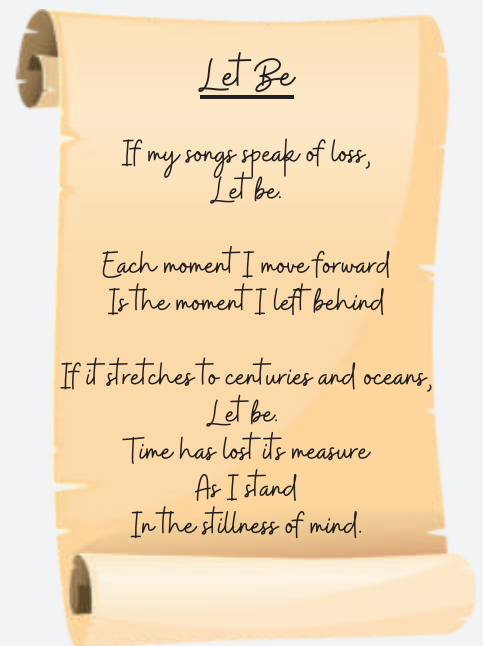 Let Be
If my songs speak of loss,
Let be.
Each moment I move forward
Is the moment I left behind
If it stretches to centuries and oceans,
Let be.
Time has lost its measure
As I stand
In the stillness of mind.